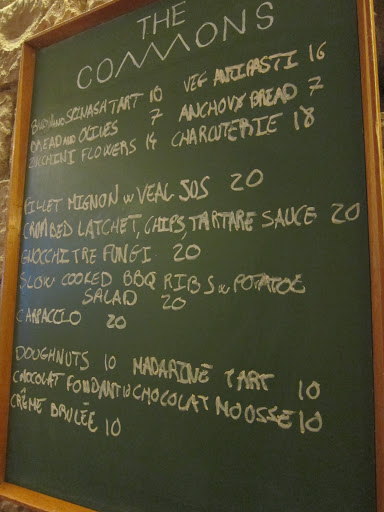 THE
COMMONS
SPINASH TART 10 VEG ANTIPASTI 16
BREAD AND OLIVES 7 ANCHOVY BREAD 7
ZUCHINI FLOWERS 14 CHARCUTERIE 18
FILLET MIGNON W VEAL JOS 20
CRUMBED LATCHET, CHIPS, TARTARE SAUCE 20
GNOCCHI TRE FUNGI 20
SLOW COOKED BBQ RIBS W POTATOE
SALAD 20
CARPACCIO 20
DOUGHNUTS 10 MADARINE TART 10
CHOCOLAT FONDANT W CHOCOLAT MOUSSE 10
CRÈME BRULÉE 10